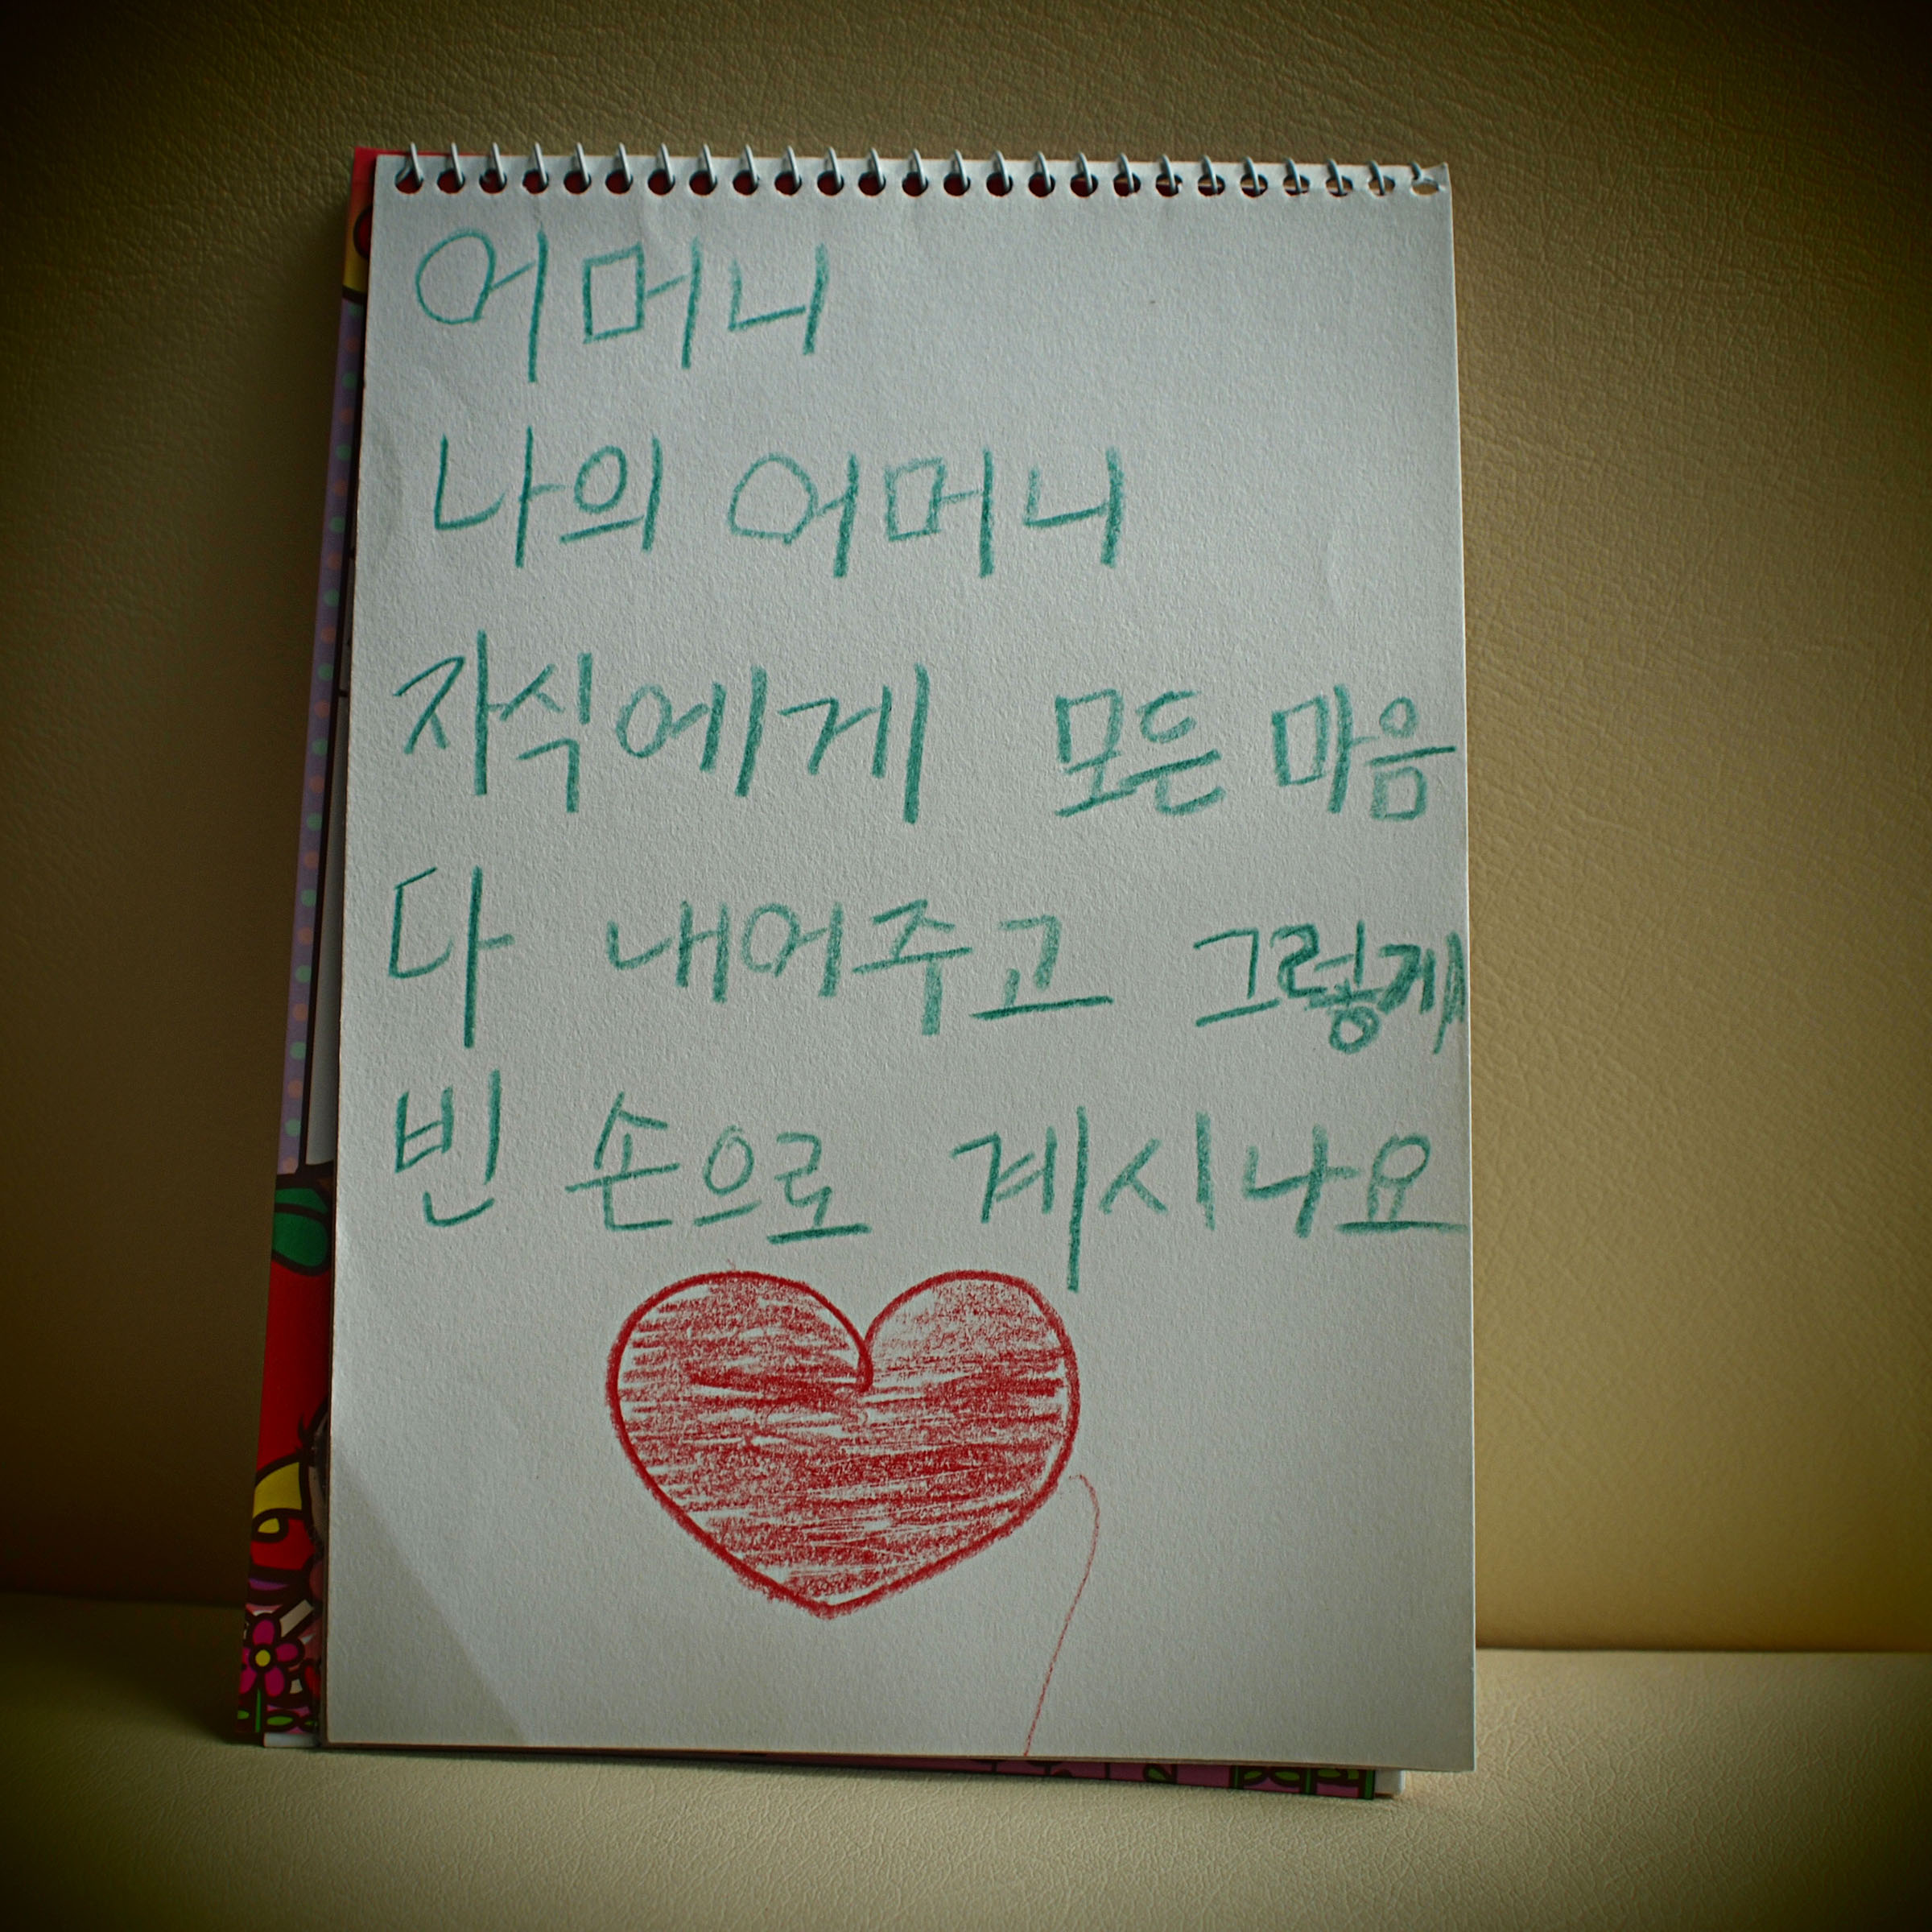 어머니
나의 어머니
자식에게 모든 마음
다 내어주고 그렇게
빈 손으로 계시나요